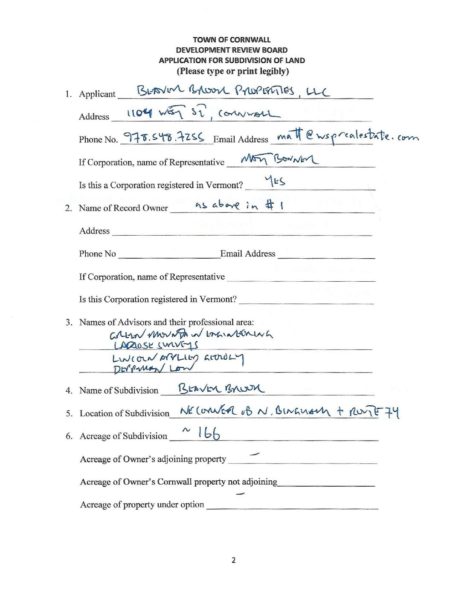 TOWN OF CORNWALL
DEVELOPMENT REVIEW BOARD
APPLICATION FOR SUBDIVISION OF LAND
(Please type or print legibly)
1. Applicant BEAVER BROOK PROPERTIES, LLC
Address 1104 WEST ST, CORNWALL
Phone No. 978.548.7255 Email Address matt@wsprealestate.com
If Corporation, name of Representative MATT BONNER
Is this a Corporation registered in Vermont? YES
2. Name of Record Owner as above in #1
Address
Phone No Email Address
If Corporation, name of Representative
Is this Corporation registered in Vermont?
3. Names of Advisors and their professional area:
GREEN MOUNTAIN ENGINEERING
LAROSE SURVEYS
LINCOLN APPLIED GEOLOGY
DEPPMAN LAW
4. Name of Subdivision BEAVER BROOK
5. Location of Subdivision NE CORNER OF N. BINGHAM + ROUTE 74
6. Acreage of Subdivision ~ 166
Acreage of Owner's adjoining property —
Acreage of Owner's Cornwall property not adjoining
Acreage of property under option —
2